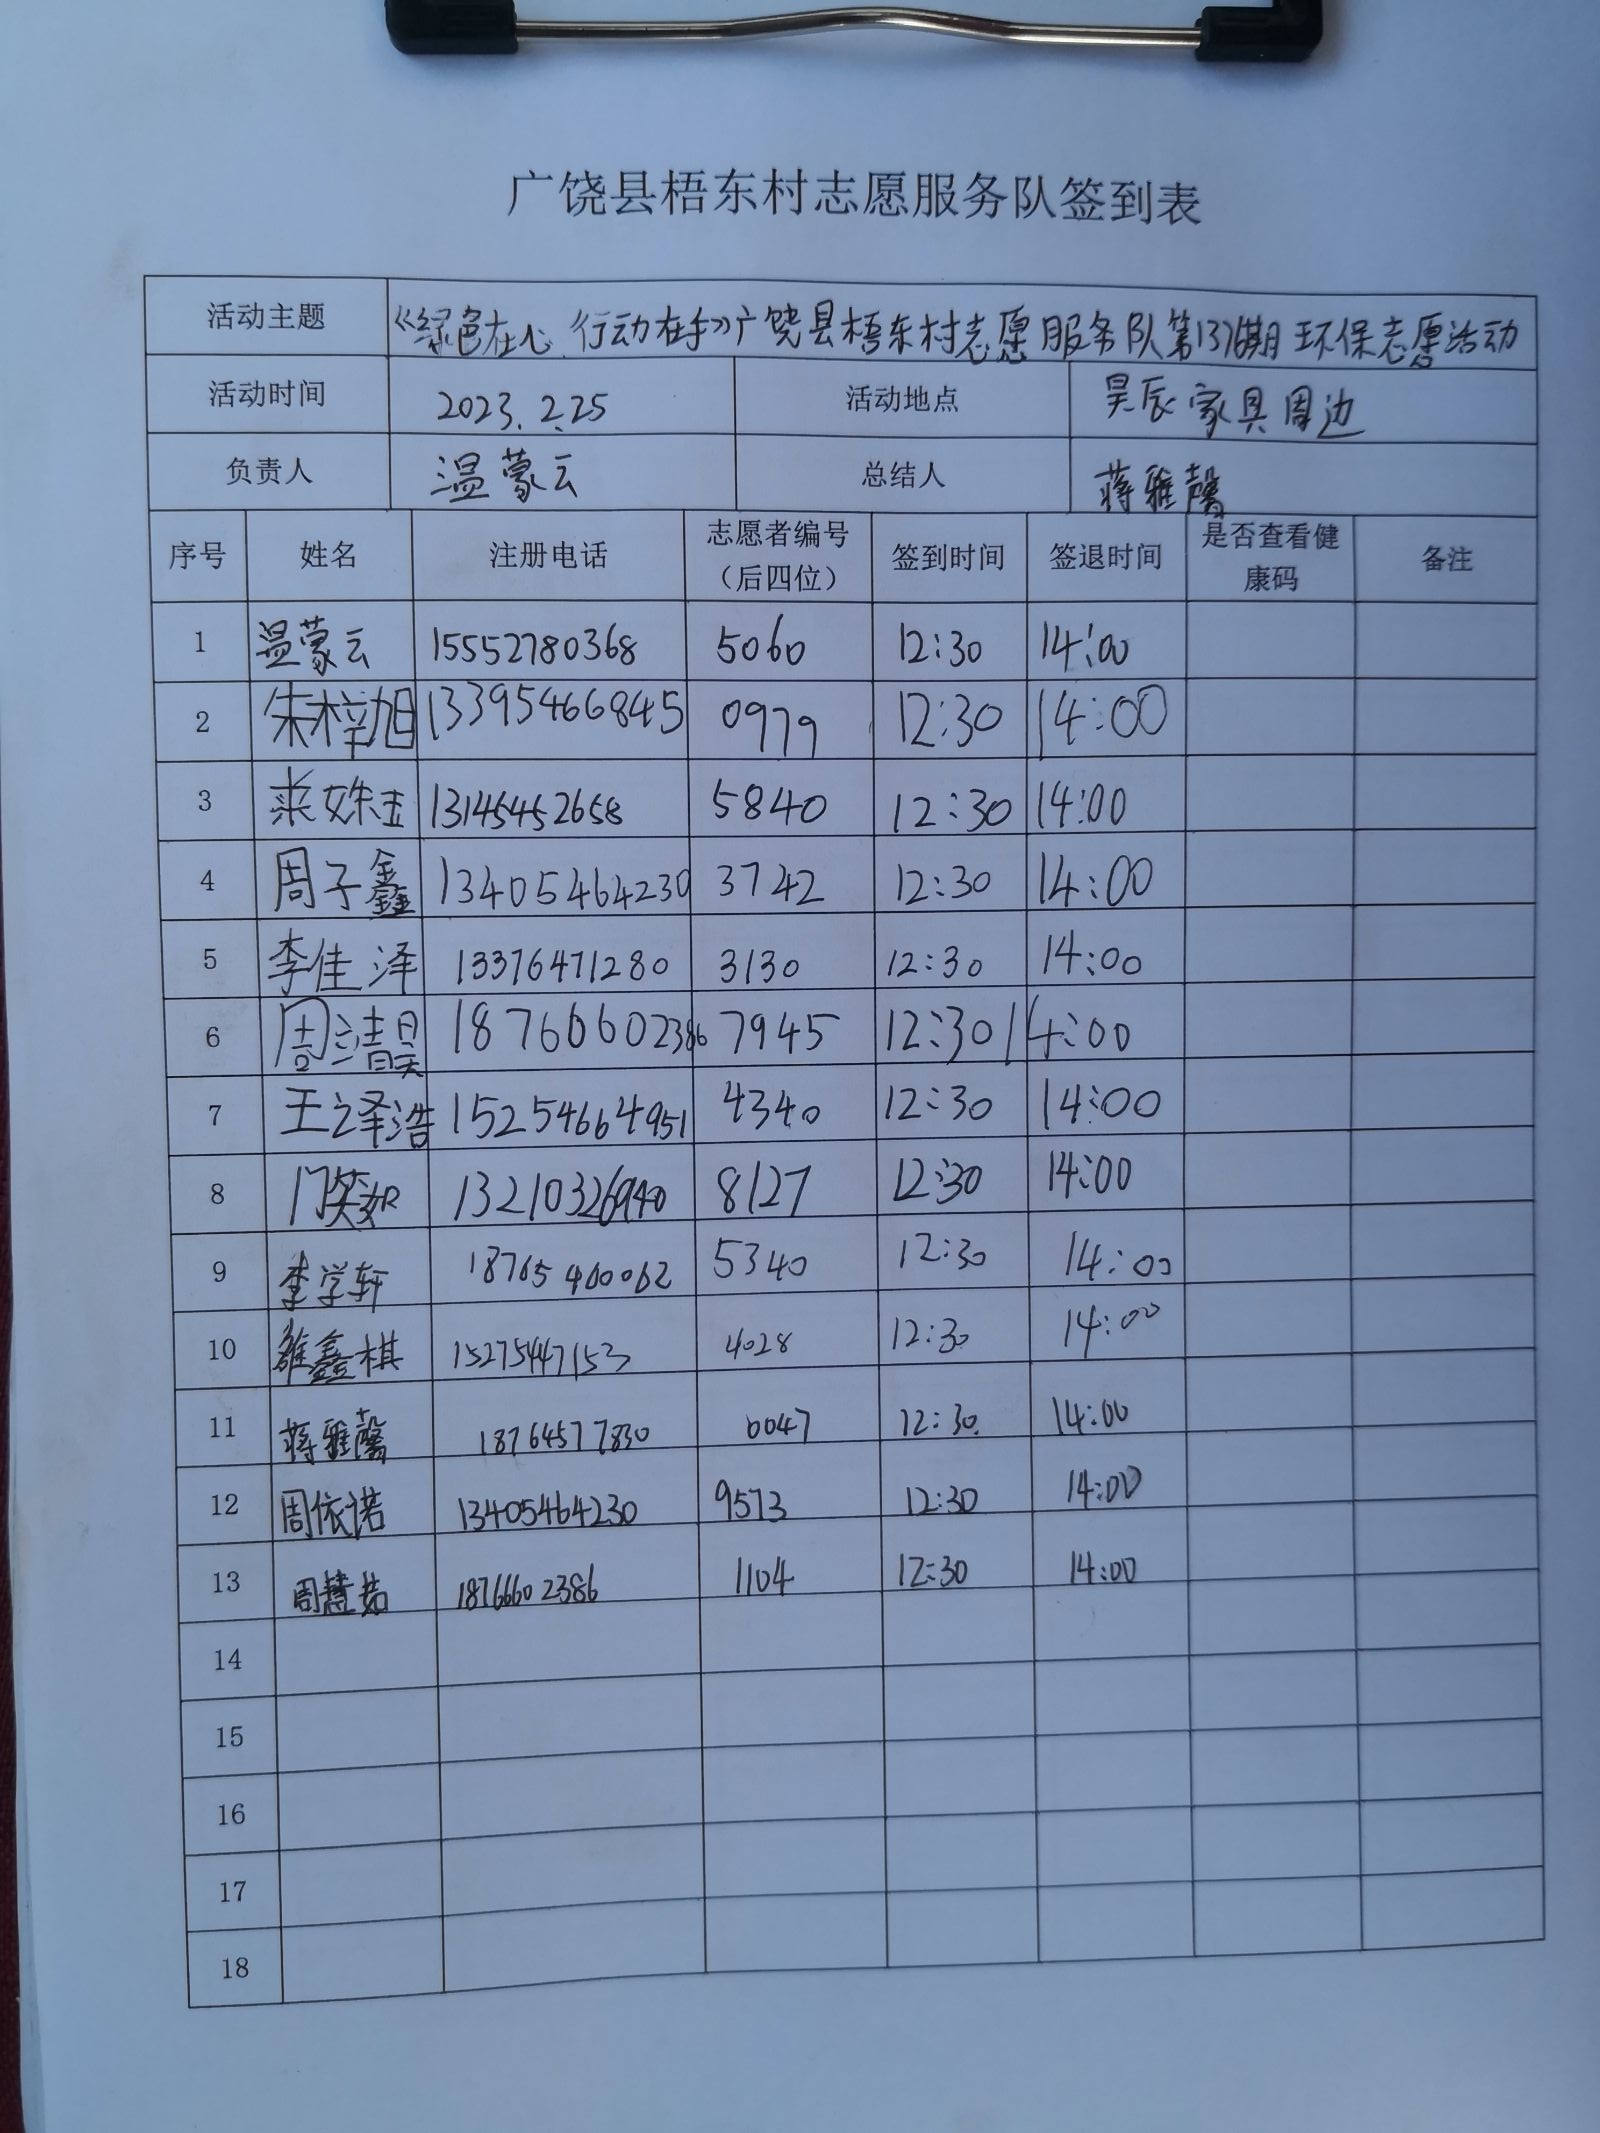 广饶县梧东村志愿服务队签到表
活动主题 《绿色在心 行动在手》广饶县梧东村志愿服务队第1376期环保志愿活动
活动时间 2023.2.25 活动地点 昊辰家具周边
负责人 温蒙云 总结人 蒋雅馨
序号 姓名 注册电话 志愿者编号（后四位） 签到时间 签退时间 是否查看健康码 备注
1 温蒙云 15552780368 5060 12:30 14:00
2 朱梓旭 13395466845 0979 12:30 14:00
3 姝玉 13145452658 5840 12:30 14:00
4 周子鑫 13405464230 3742 12:30 14:00
5 李佳泽 13376471280 3130 12:30 14:00
6 周靖昊 18766602386 7945 12:30 14:00
7 王之泽浩 15254664951 4340 12:30 14:00
8 门笑如 13210326940 8127 12:30 14:00
9 李学轩 18765460062 5340 12:30 14:00
10 雒鑫棋 15275447153 4028 12:30 14:00
11 蒋雅馨 18764577830 0047 12:30 14:00
12 周依诺 13405464230 9573 12:30 14:00
13 周慧茹 18766602386 1104 12:30 14:00
14
15
16
17
18